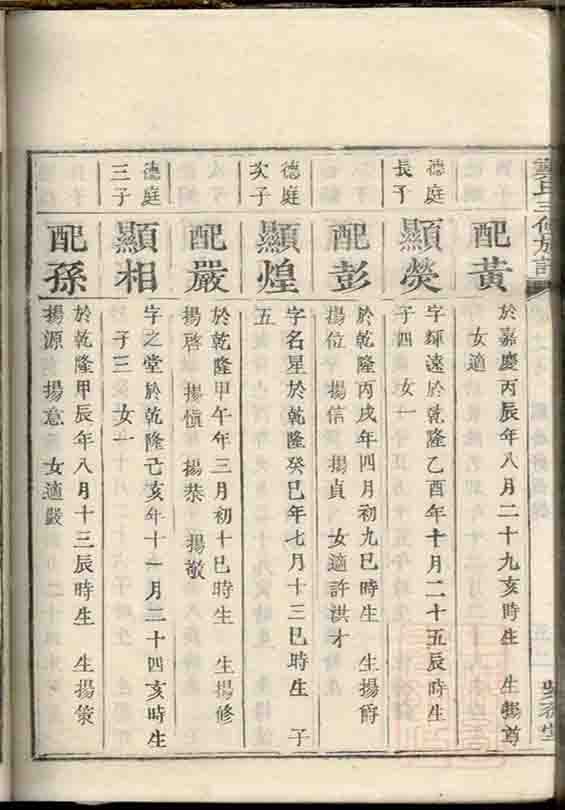 三修族譜
配黃
於嘉慶丙辰年八月二十九亥時生 生揚尊
女適
德庭
長子
顯熒
字輝遠於乾隆乙酉年十月二十五辰時生
子四 女一
配彭
於乾隆丙戌年四月初九巳時生 生揚爵
揚位 揚信 揚貞 女適許洪才
德庭
次子
顯煌
字名星於乾隆癸巳年七月十三巳時生 子
五
配嚴
於乾隆甲午年三月初十巳時生 生揚修
揚啓 揚愼 揚恭 揚敬
德庭
三子
顯相
字之堂於乾隆己亥年十一月二十四亥時生
子三 女一
配孫
於乾隆甲辰年八月十三辰時生 生揚策
揚源 揚意 女適嚴